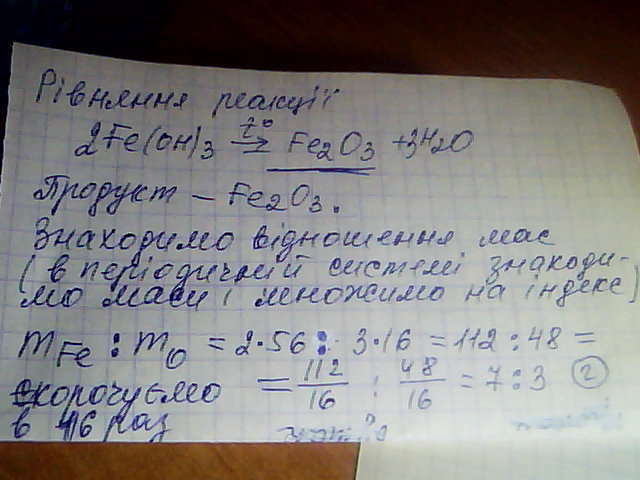 Рівняння реакції
2Fe(OH)3 t° → Fe2O3 + 3H2O
Продукт – Fe2O3.
Знаходимо відношення мас
(в періодичній системі знаходи-
мо маси і множимо на індекс)
mFe : mO = 2·56 : 3·16 = 112 : 48 =
скорочуємо = 112/16 : 48/16 = 7:3 (г)
в 16 раз